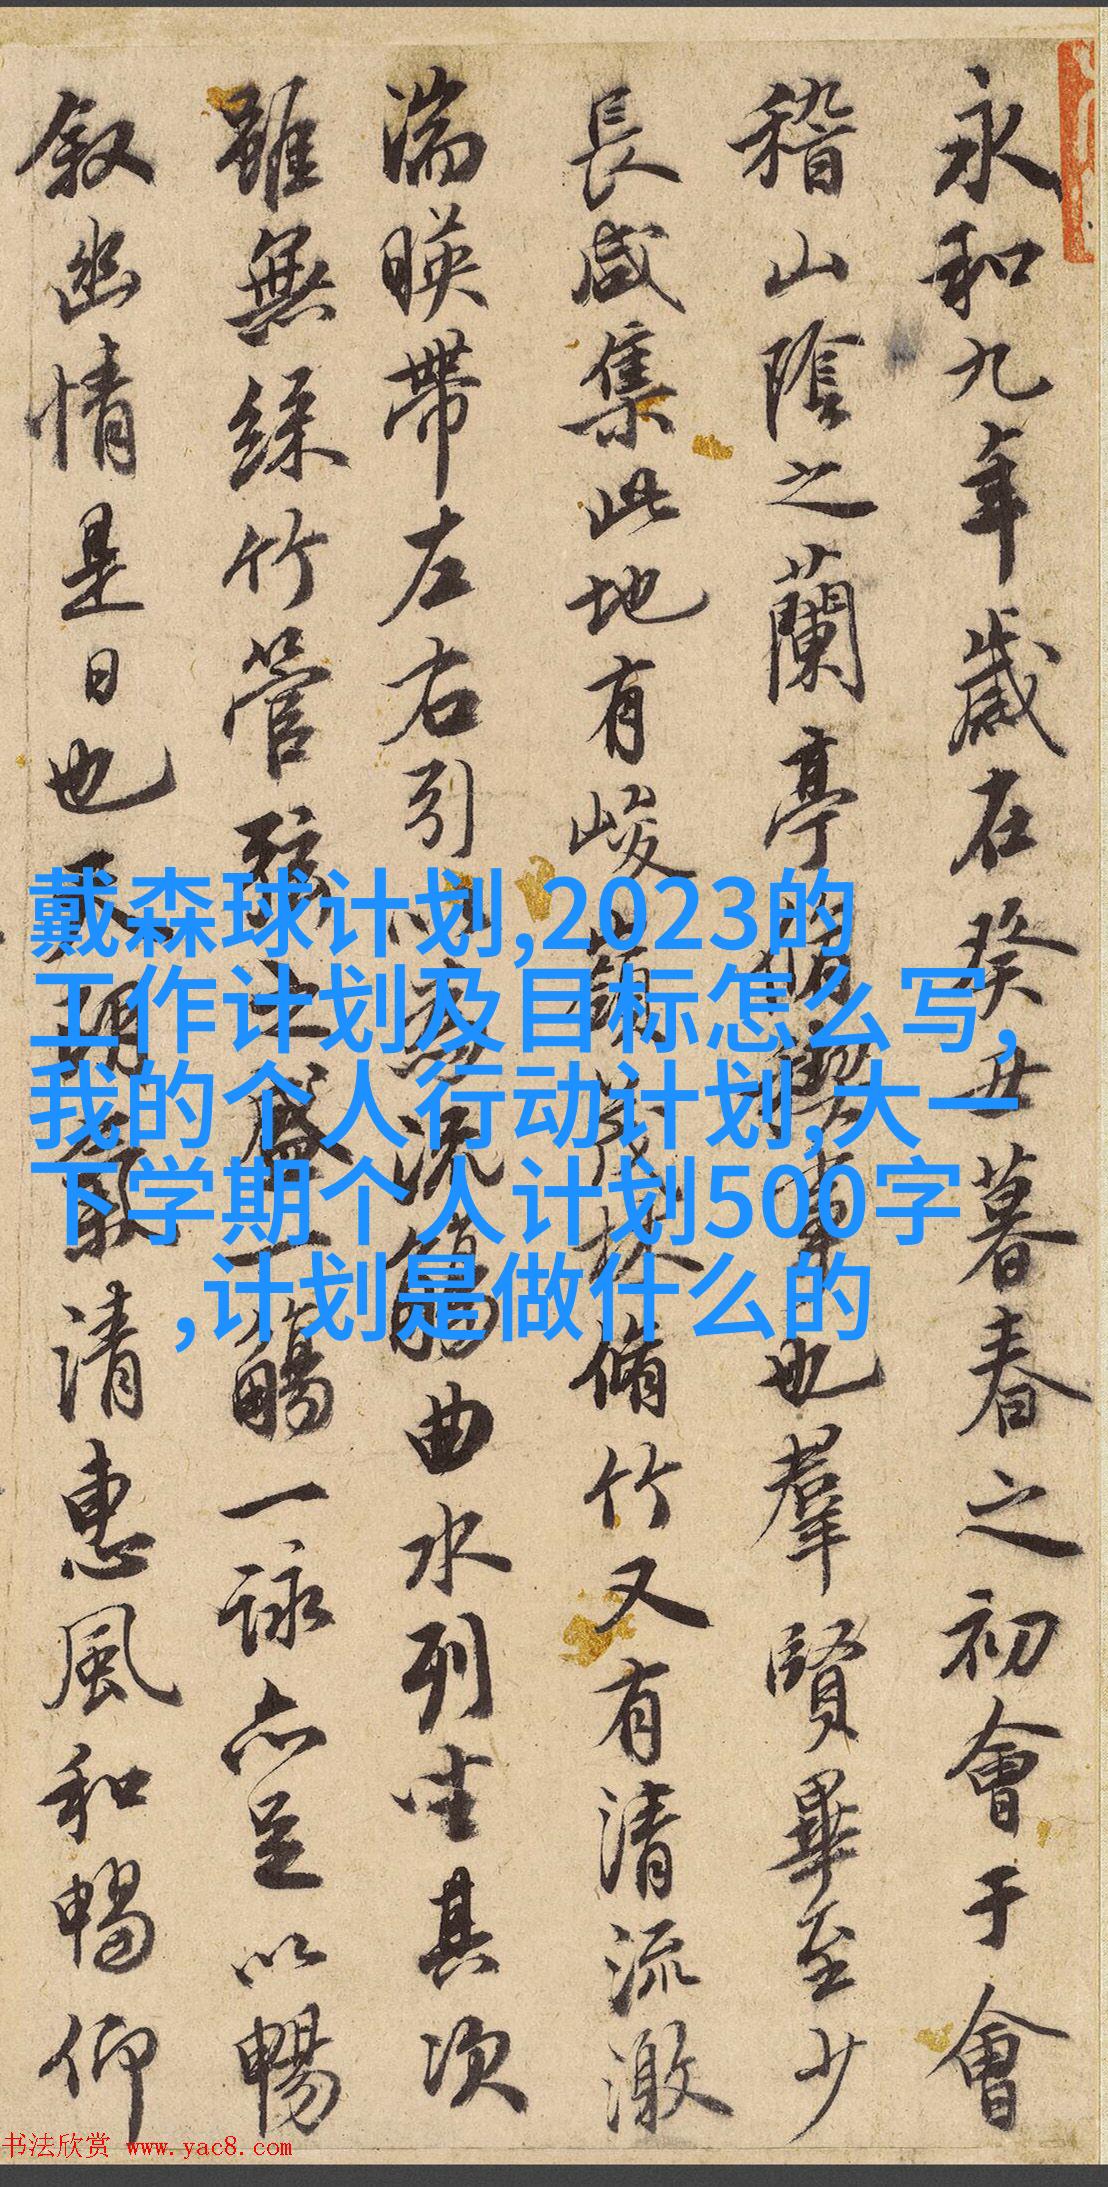 永和九年歲在癸丑暮春之初會于會
稽山陰之蘭亭脩禊事也羣賢畢至少
長咸集此地有峻嶺茂林脩竹又有清流激
湍暎帶左右引以為流觴曲水列坐其次
雖無絲竹管弦之盛一觴一詠亦足以暢
叙幽情是日也天朗氣清惠風和暢仰
戴森球计划,2023的
工作计划及目标怎么写,
我的个人行动计划,大一
下学期个人计划500字
,计划是做什么的
书法欣赏 www.yac8.com